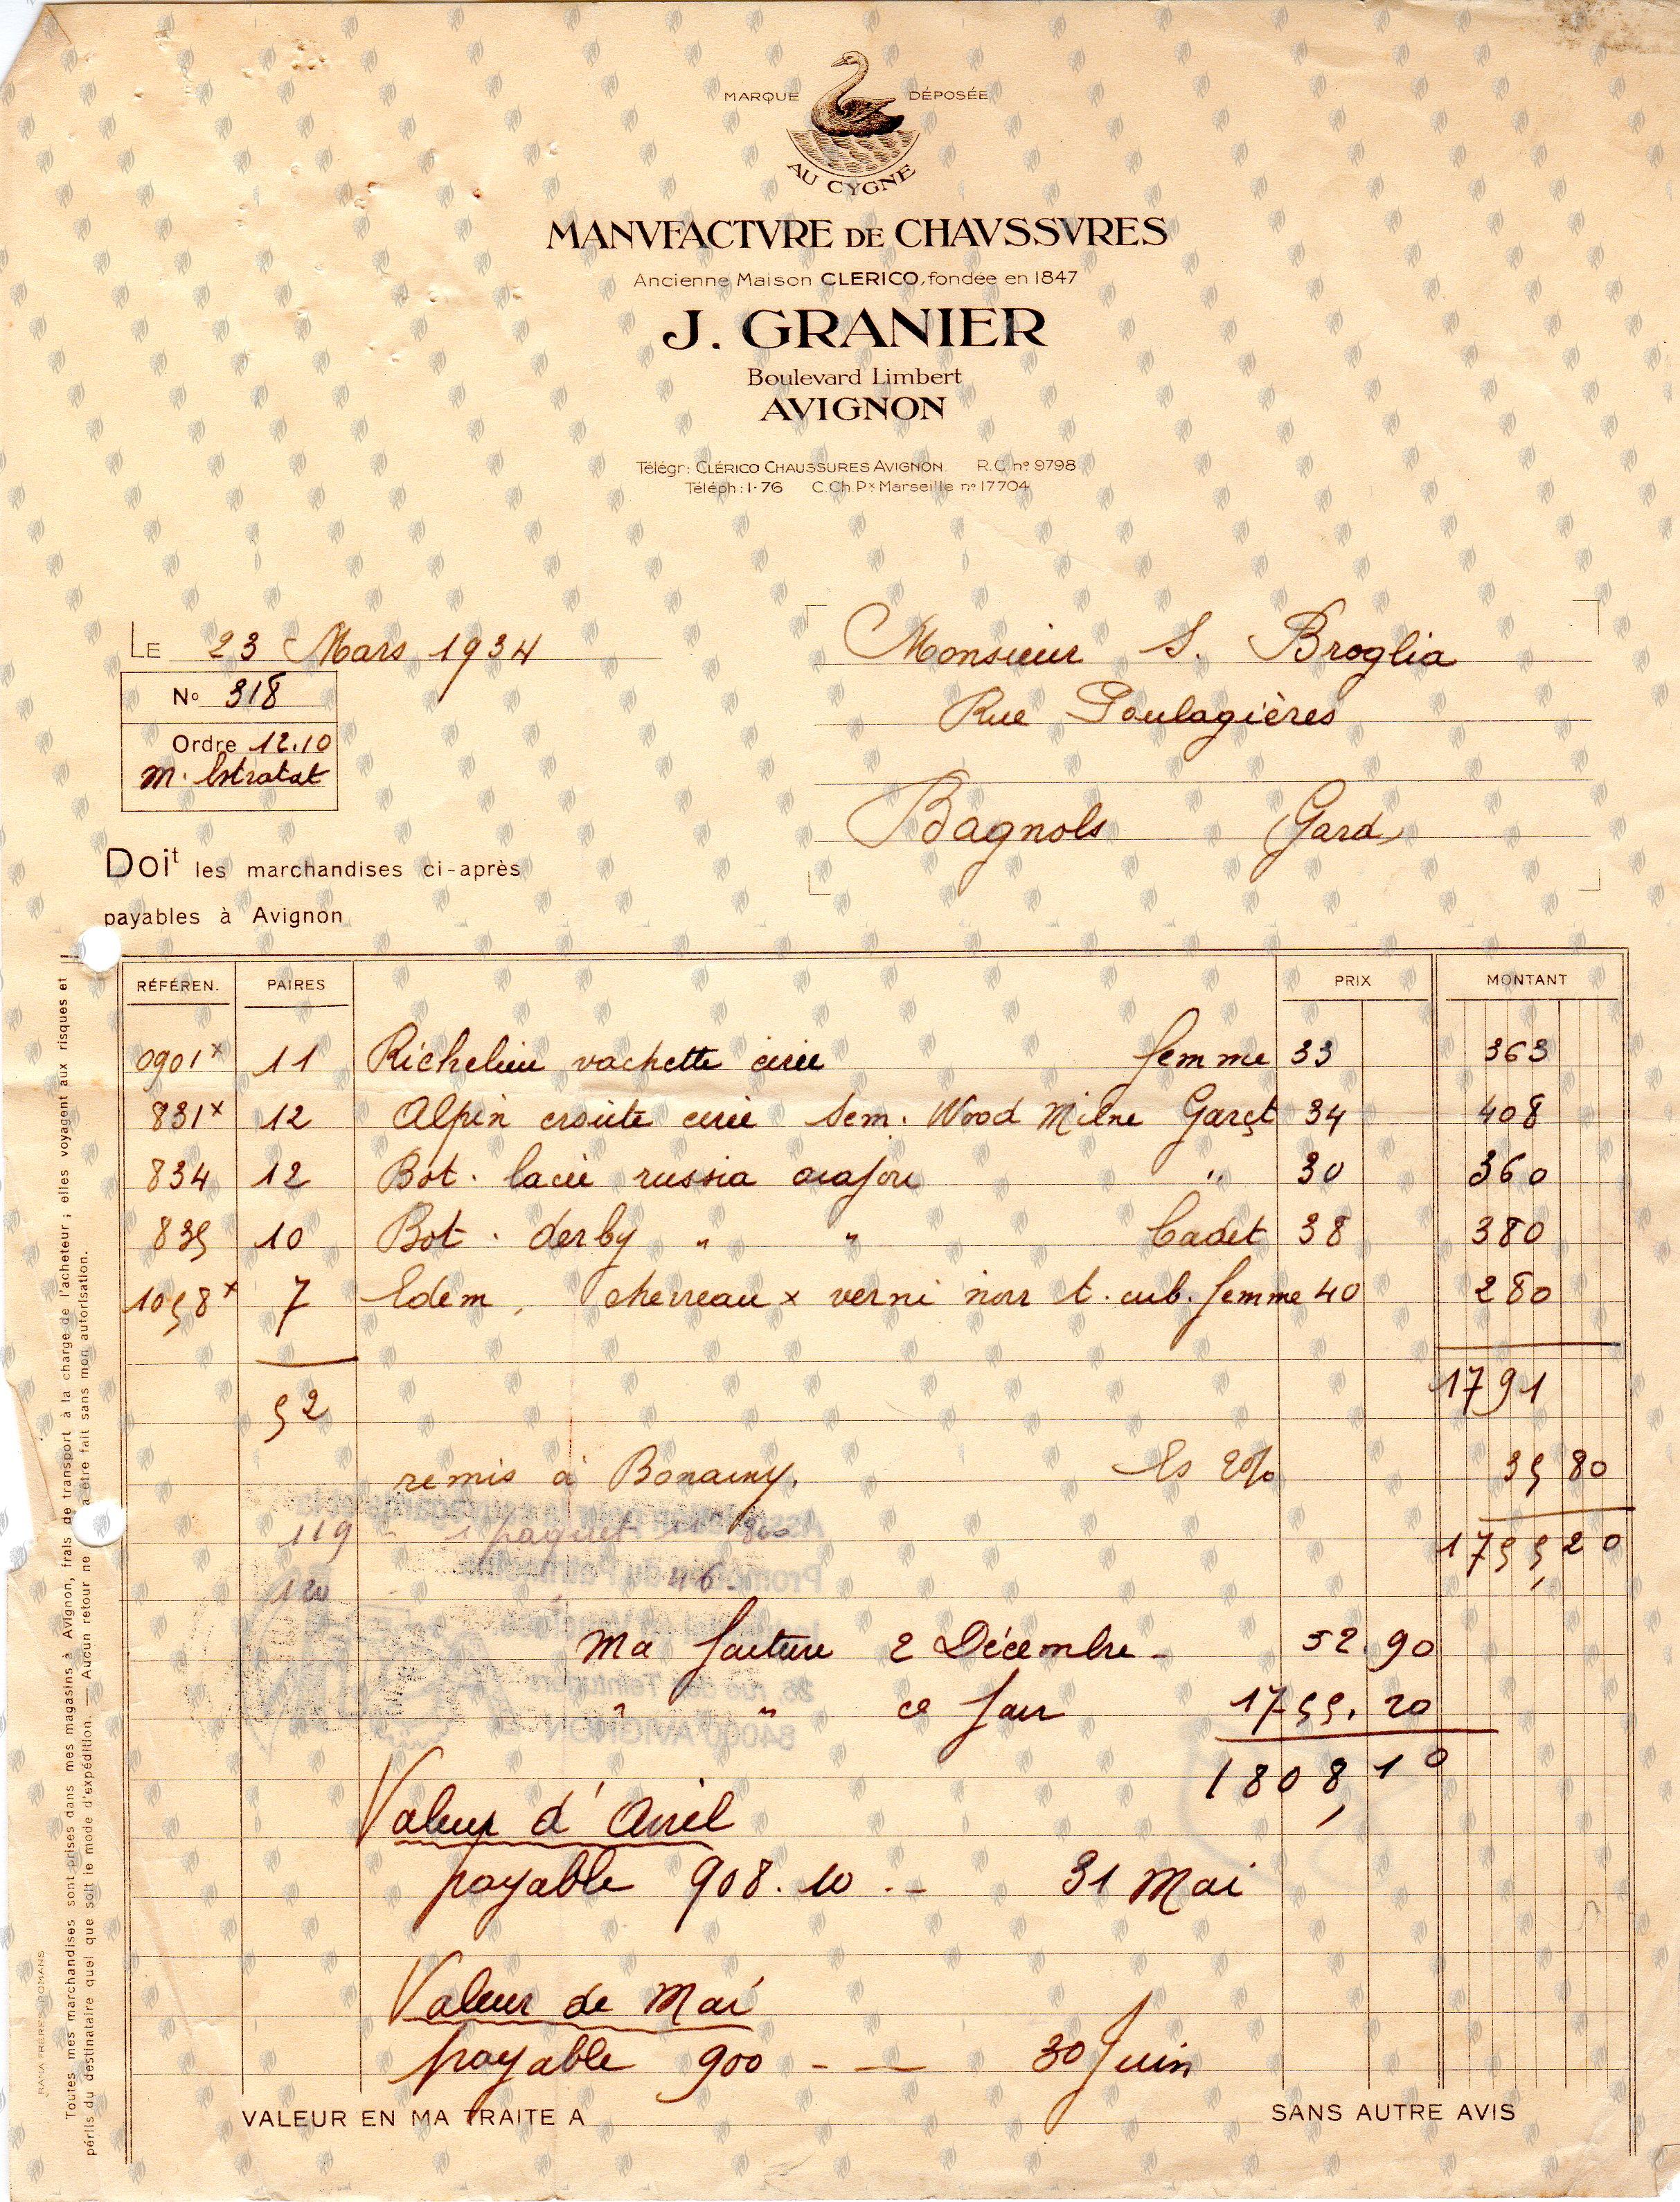 MARQUE DÉPOSÉE
AU CYGNE
MANVFACTVRE DE CHAVSSVRES
Ancienne Maison CLERICO, fondée en 1847
J. GRANIER
Boulevard Limbert
AVIGNON
Télégr: CLÉRICO CHAUSSURES AVIGNON R.C. nº 9798
Téléph: 1-76 C.Ch.Px Marseille nº 17704
LE 23 Mars 1934
Nº 318
Ordre 12.10
M. Estratat
Monsieur S. Broglia
Rue Poulagières
Bagnols (Gard)
Doit les marchandises ci-après
payables à Avignon
RÉFÉREN. PAIRES PRIX MONTANT
0901x 11 Richelieu vachette cirée femme 33 363
831x 12 Alpin croûte cirée sem. Wood Milne Garçt 34 408
834 12 Bot. lacée russia acajou " 30 360
835 10 Bot. derby " " Cadet 38 380
1058x 7 Edem, chevreau x verni noir t. cub. femme 40 280
52 1791
remis à Bonamy. Es 2% 35 80
119 - 1 paquet
1755,20
120 - 46.
Ma facture 2 Décembre - 52.90
" " ce jour 1755,20
1808,10
Valeur d'Avril
payable 908.10 .- 31 Mai
Valeur de Mai
payable 900 - — 30 Juin
VALEUR EN MA TRAITE A SANS AUTRE AVIS
Toutes mes marchandises sont prises dans mes magasins à Avignon, frais de transport à la charge de l'acheteur ; elles voyagent aux risques et
périls du destinataire quel que soit le mode d'expédition. — Aucun retour ne a être fait sans mon autorisation.
RAMA FRÈRES ROMANS
Promotion du Patrimoine
26 rue des Teinturiers
84000 AVIGNON